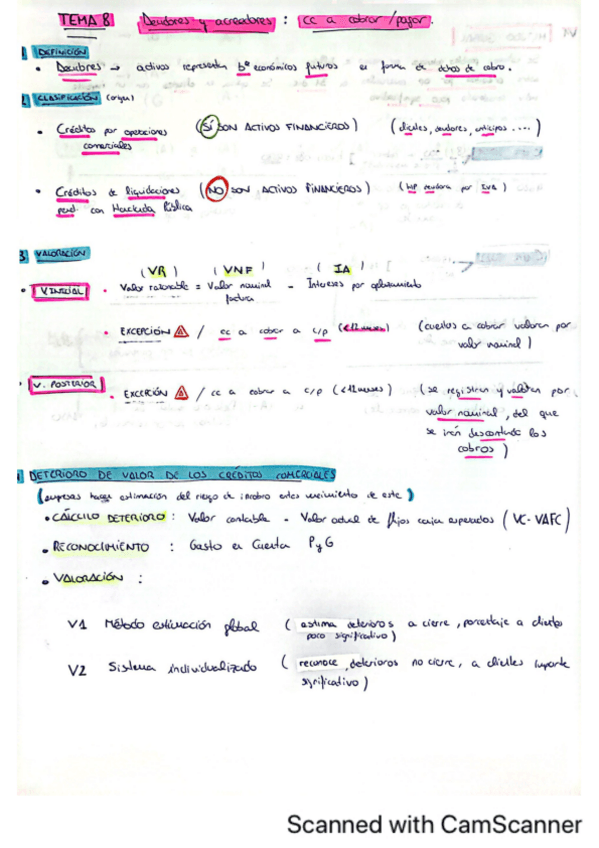 TEMA 8 Deudores y acreedores : cc a cobrar / pagar.
1 DEFINICIÓN
• Deudores → activos representan bº económicos futuros en forma de dchos de cobro.
2 CLASIFICACIÓN (origen)
• Créditos por operaciones (SÍ SON ACTIVOS FINANCIEROS) (clientes, deudores, anticipos ....)
comerciales
• Créditos de liquidaciones (NO SON ACTIVOS FINANCIEROS) (HP deudora por IVA)
pend. con Hacienda Pública
3 VALORACIÓN
(VR) (VNF) (IA)
• V INICIAL • Valor razonable = Valor nominal - Intereses por aplazamiento
factura
• EXCEPCIÓN / cc a cobrar a c/p (<12 meses) (cuentas a cobrar valoran por
valor nominal)
• V. POSTERIOR • EXCEPCIÓN / cc a cobrar a c/p (<12 meses) (se registran y valoran por
valor nominal, del que
se irán descontando los
cobros)
DETERIORO DE VALOR DE LOS CRÉDITOS COMERCIALES
(empresas hagan estimación del riesgo de incobro antes vencimiento de este)
• CÁLCULO DETERIORO : Valor contable - Valor actual de flujos caja esperados (VC - VAFC)
• RECONOCIMIENTO : Gasto en Cuenta PyG
• VALORACIÓN :
V1 Método estimación global (estima deterioros a cierre, porcentaje a clientes
poco significativo)
V2 Sistema individualizado (reconoce deterioros no cierre, a clientes importe
significativo)
Scanned with CamScanner